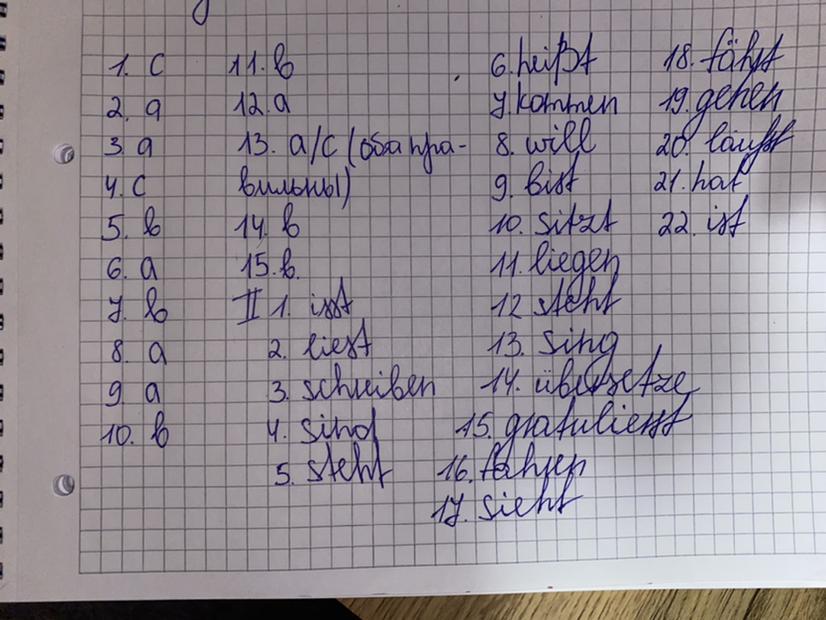 1. c
2. a
3. a
4. c
5. b
6. a
7. b
8. a
9. a
10. b
11. b
12. a
13. a/c (оба пра-
вильны)
14. b
15. b.
II 1. isst
2. liest
3. schreiben
4. sind
5. steht
6. heißt
7. kommen
8. will
9. bist
10. sitzt
11. liegen
12 steht
13. sing
14. übersetze
15. gratulierst
16. fahren
17. sieht
18. fährt
19. gehen
20. läufst
21. hat
22. ist